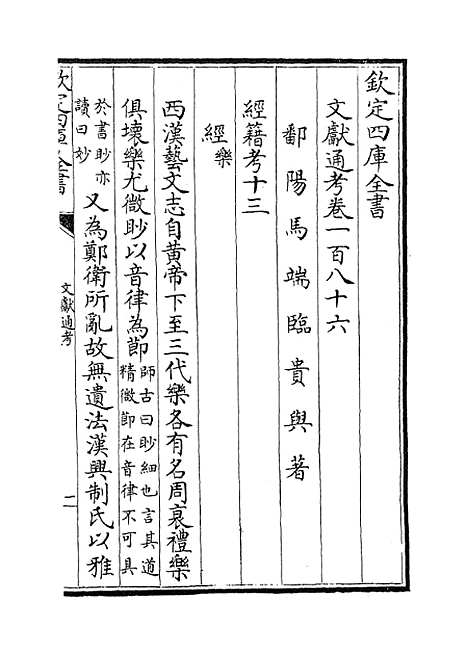 欽定四庫全書
文獻通考卷一百八十六
鄱陽馬端臨貴與著
經籍考十三
經樂
西漢藝文志自黃帝下至三代樂各有名周衰禮樂
俱壞樂尤微眇以音律為節師古曰眇細也言其道精微節在音律不可具
於書眇亦讀曰妙又為鄭衛所亂故無遺法漢興制氏以雅
欽定四庫全書
文獻通考